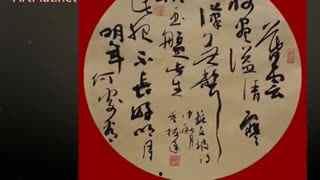 暮雲
收盡溢清寒
銀漢無聲
玉盤此生
夜不長好明月
明年何處看
中秋月